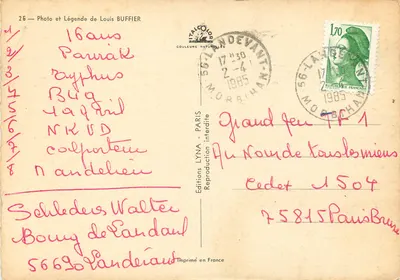 26 — Photo et Légende de Louis BUFFIER
16 ans
typhus
Bug
19 avril
NKVD
colporteur
Mandelieu
1/2/3/4/5/6/7/8
Schleders Walter
Bourg de Landaul
56690 Landévant
Editions LYNA - PARIS
Reproduction interdite
Imprimé en France
56-LANDEVANT
17-30
2-4
1985
MORBIHAN
1,70
56-LANDEVANT
1985
MORBIHAN
Grand Jeu TF1
Au Nom de Tous les miens
Cedex 1504
75815 Paris Brune